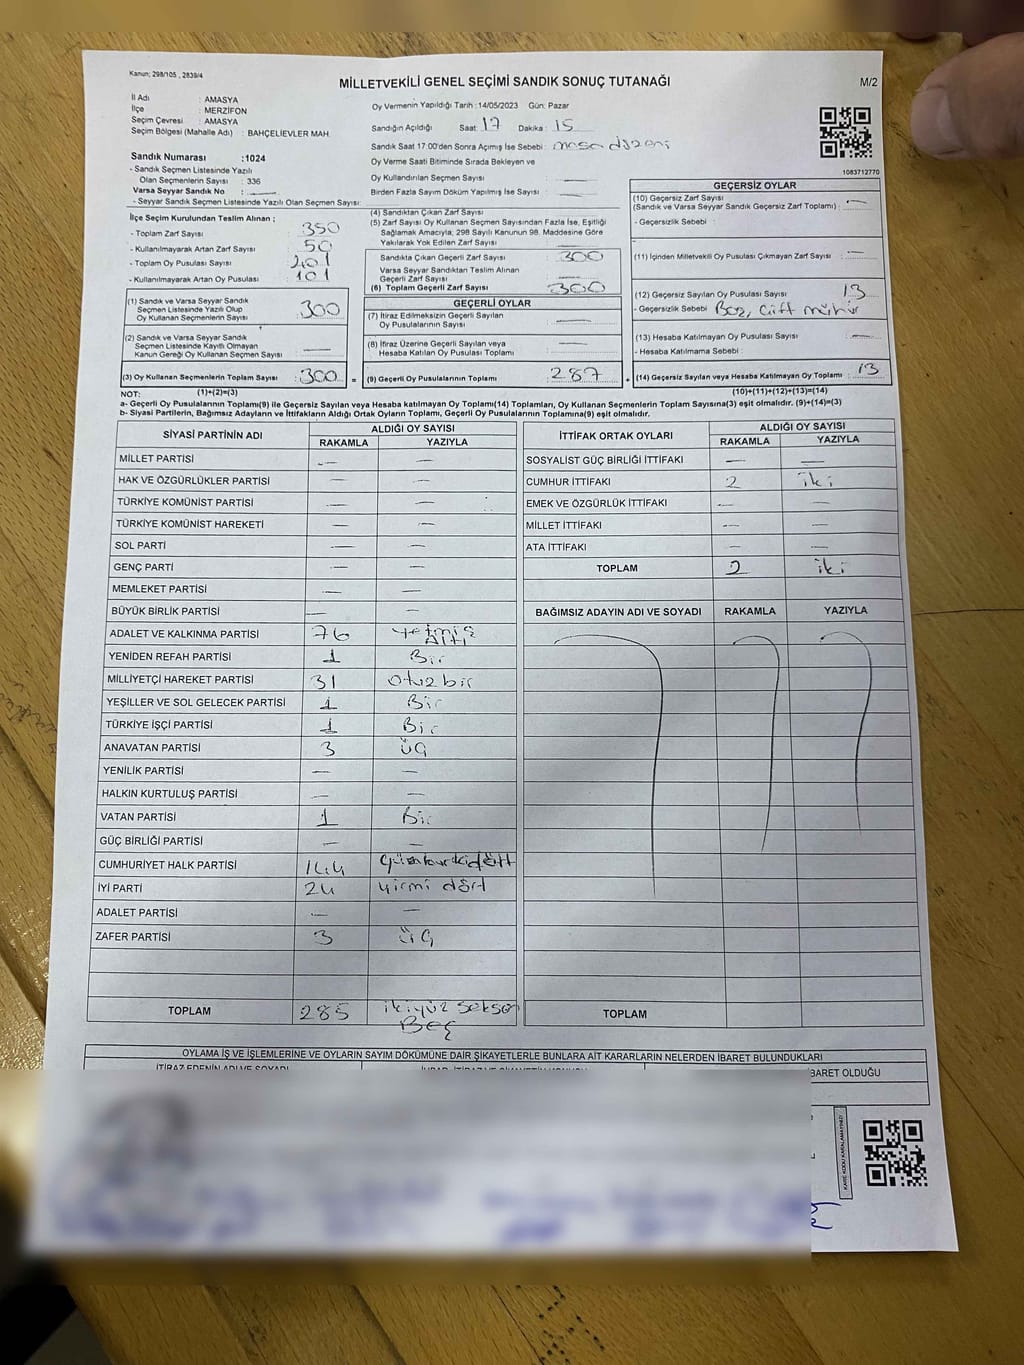 Kanun; 298/105 , 2839/4
MİLLETVEKİLİ GENEL SEÇİMİ SANDIK SONUÇ TUTANAĞI
M/2
İl Adı : AMASYA
İlçe : MERZİFON
Seçim Çevresi : AMASYA
Seçim Bölgesi (Mahalle Adı) : BAHÇELİEVLER MAH.
Sandık Numarası :1024
- Sandık Seçmen Listesinde Yazılı
Olan Seçmenlerin Sayısı : 336
Varsa Seyyar Sandık No :
- Seyyar Sandık Seçmen Listesinde Yazılı Olan Seçmen Sayısı:
Oy Vermenin Yapıldığı Tarih :14/05/2023 Gün: Pazar
Sandığın Açıldığı Saat : 17 Dakika : 15
Sandık Saat 17:00'den Sonra Açımış İse Sebebi : masa düzeni
Oy Verme Saati Bitiminde Sırada Bekleyen ve
Oy Kullandırılan Seçmen Sayısı : —
Birden Fazla Sayım Döküm Yapılmış İse Sayısı : —
1083712770
İlçe Seçim Kurulundan Teslim Alınan ;
- Toplam Zarf Sayısı : 350
- Kullanılmayarak Artan Zarf Sayısı : 50
- Toplam Oy Pusulası Sayısı : 401
- Kullanılmayarak Artan Oy Pusulası : 101
(1) Sandık ve Varsa Seyyar Sandık
Seçmen Listesinde Yazılı Olup
Oy Kullanan Seçmenlerin Sayısı : 300
(2) Sandık ve Varsa Seyyar Sandık
Seçmen Listesinde Kayıtlı Olmayan
Kanun Gereği Oy Kullanan Seçmen Sayısı : —
(3) Oy Kullanan Seçmenlerin Toplam Sayısı : 300 =
(4) Sandıktan Çıkan Zarf Sayısı
(5) Zarf Sayısı Oy Kullanan Seçmen Sayısından Fazla İse, Eşitliği
Sağlamak Amacıyla, 298 Sayılı Kanunun 98. Maddesine Göre
Yakılarak Yok Edilen Zarf Sayısı : —
Sandıkta Çıkan Geçerli Zarf Sayısı : 300
Varsa Seyyar Sandıktan Teslim Alınan
Geçerli Zarf Sayısı : —
(6) Toplam Geçerli Zarf Sayısı : 300
GEÇERLİ OYLAR
(7) İtiraz Edilmeksizin Geçerli Sayılan
Oy Pusulalarının Sayısı : —
(8) İtiraz Üzerine Geçerli Sayılan veya
Hesaba Katılan Oy Pusulası Toplamı : —
(9) Geçerli Oy Pusulalarının Toplamı : 287 +
GEÇERSİZ OYLAR
(10) Geçersiz Zarf Sayısı
(Sandık ve Varsa Seyyar Sandık Geçersiz Zarf Toplamı) : —
- Geçersizlik Sebebi :
(11) İçinden Milletvekili Oy Pusulası Çıkmayan Zarf Sayısı : —
(12) Geçersiz Sayılan Oy Pusulası Sayısı : 13
- Geçersizlik Sebebi : Boş, Çift mühür
(13) Hesaba Katılmayan Oy Pusulası Sayısı : —
- Hesaba Katılmama Sebebi :
(14) Geçersiz Sayılan veya Hesaba Katılmayan Oy Toplamı : 13
NOT: (1)+(2)=(3) (10)+(11)+(12)+(13)=(14)
a- Geçerli Oy Pusulalarının Toplamı(9) ile Geçersiz Sayılan veya Hesaba Katılmayan Oy Toplamı(14) Toplamları, Oy Kullanan Seçmenlerin Toplam Sayısına(3) eşit olmalıdır. (9)+(14)=(3)
b- Siyasi Partilerin, Bağımsız Adayların ve İttifakların Aldığı Ortak Oyların Toplamı, Geçerli Oy Pusulalarının Toplamına(9) eşit olmalıdır.
SİYASİ PARTİNİN ADI ALDIĞI OY SAYISI
RAKAMLA YAZIYLA
MİLLET PARTİSİ — —
HAK VE ÖZGÜRLÜKLER PARTİSİ — —
TÜRKİYE KOMÜNİST PARTİSİ — —
TÜRKİYE KOMÜNİST HAREKETİ — —
SOL PARTİ — —
GENÇ PARTİ — —
MEMLEKET PARTİSİ — —
BÜYÜK BİRLİK PARTİSİ — —
ADALET VE KALKINMA PARTİSİ 76 Yetmiş Altı
YENİDEN REFAH PARTİSİ 1 Bir
MİLLİYETÇİ HAREKET PARTİSİ 31 otuz bir
YEŞİLLER VE SOL GELECEK PARTİSİ 1 Bir
TÜRKİYE İŞÇİ PARTİSİ 1 Bir
ANAVATAN PARTİSİ 3 üç
YENİLİK PARTİSİ — —
HALKIN KURTULUŞ PARTİSİ — —
VATAN PARTİSİ 1 Bir
GÜÇ BİRLİĞİ PARTİSİ — —
CUMHURİYET HALK PARTİSİ 144
İYİ PARTİ 24 yirmi dört
ADALET PARTİSİ — —
ZAFER PARTİSİ 3 üç
TOPLAM 285 ikiyüz seksen
Beş
İTTİFAK ORTAK OYLARI ALDIĞI OY SAYISI
RAKAMLA YAZIYLA
SOSYALİST GÜÇ BİRLİĞİ İTTİFAKI — —
CUMHUR İTTİFAKI 2 iki
EMEK VE ÖZGÜRLÜK İTTİFAKI — —
MİLLET İTTİFAKI — —
ATA İTTİFAKI — —
TOPLAM 2 iki
BAĞIMSIZ ADAYIN ADI VE SOYADI RAKAMLA YAZIYLA
TOPLAM
OYLAMA İŞ VE İŞLEMLERİNE VE OYLARIN SAYIM DÖKÜMÜNE DAİR ŞİKAYETLERLE BUNLARA AİT KARARLARIN NELERDEN İBARET BULUNDUKLARI
İTİRAZ EDENİN ADI VE SOYADI
BARET OLDUĞU
KARE KODU KARALAMAYINIZ!